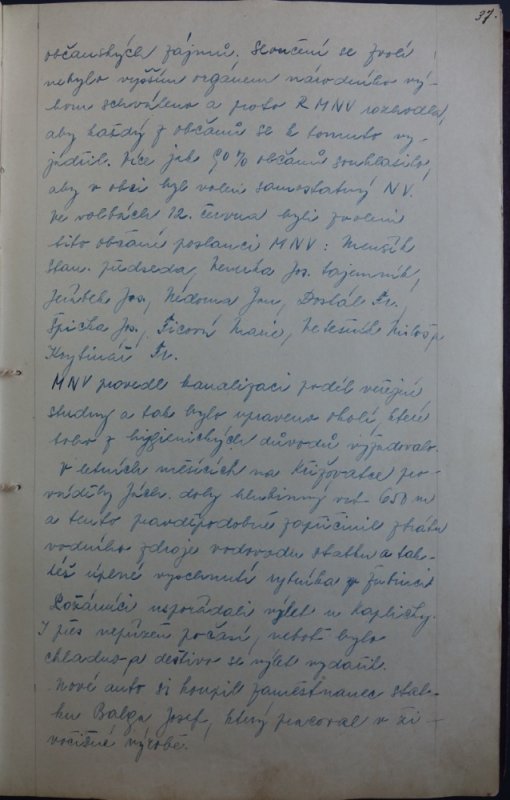 37.
občanských zájmů. Sloučení se zvolí
nebylo vyšším orgánem národního vý-
boru schváleno a proto R MNV rozhodla,
aby každý z občanů se k tomuto vy-
jádřil. Více jak 90% občanů souhlasilo,
aby v obci byl volen samostatný NV.
Ve volbách 12. června byli zvoleni
tito občané poslanci MNV: Menšík
Stan. předseda, Jos. tajemník,
Jeřábek Jos, Nedoma Jan, Dostál Fr.
Špička Jos, Ficová Marie, Miloš
Fr.
MNV provedl kanalizaci podél veřejné
studny a tak bylo upraveno okolí, které
toho z hygienických důvodů vyžadovalo.
V letních měsících na křižovatce pro-
váděly Jách. doly hlubinný vrt 650 m
a tento pravděpodobně zapříčinil ztrátu
vodního zdroje vodovodu statku a tak-
též úplné vyschnutí rybníka
Požárníci uspořádali výlet u Kapličky.
I přes nepřízeň počasí, neboť bylo
chladno a deštivo se výlet vydařil.
Nové auto si koupil zaměstnanec stat-
ku Balga Josef, který pracoval v ži-
vočišné výrobě.